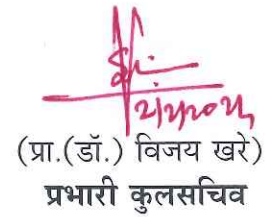 (प्रा.(डॉ.) विजय खरे)
प्रभारी कुलसचिव